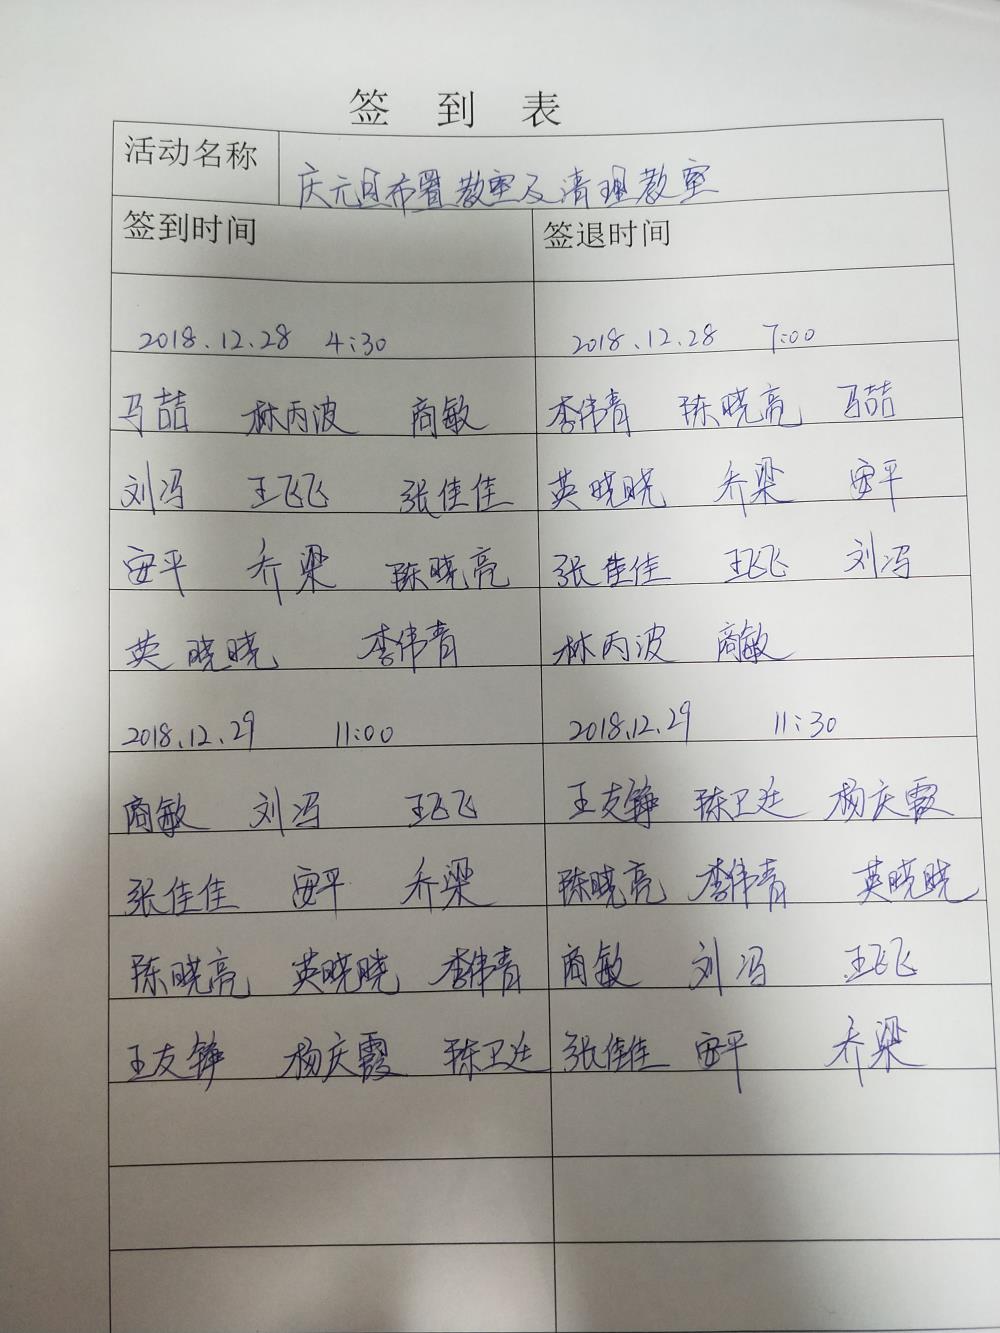 签 到 表
活动名称 庆元旦布置教室及清理教室
签到时间 签退时间
2018.12.28 4:30 2018.12.28 7:00
马喆 林丙波 商敏 李伟青 陈晓亮 马喆
刘冯 王飞飞 张佳佳 英晓晓 乔梁 安平
安平 乔梁 陈晓亮 张佳佳 王飞飞 刘冯
英晓晓 李伟青 林丙波 商敏
2018.12.29 11:00 2018.12.29 11:30
商敏 刘冯 王飞飞 王友铮 陈卫廷 杨庆霞
张佳佳 安平 乔梁 陈晓亮 李伟青 英晓晓
陈晓亮 英晓晓 李伟青 商敏 刘冯 王飞飞
王友铮 杨庆霞 陈卫廷 张佳佳 安平 乔梁